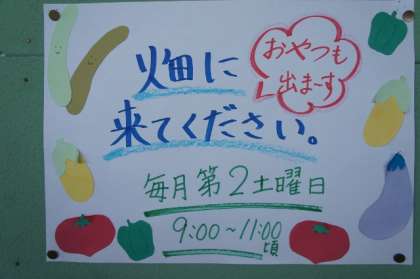 畑に
来てください。
おやつも
出まーす
毎月第2土曜日
9:00~11:00
頃